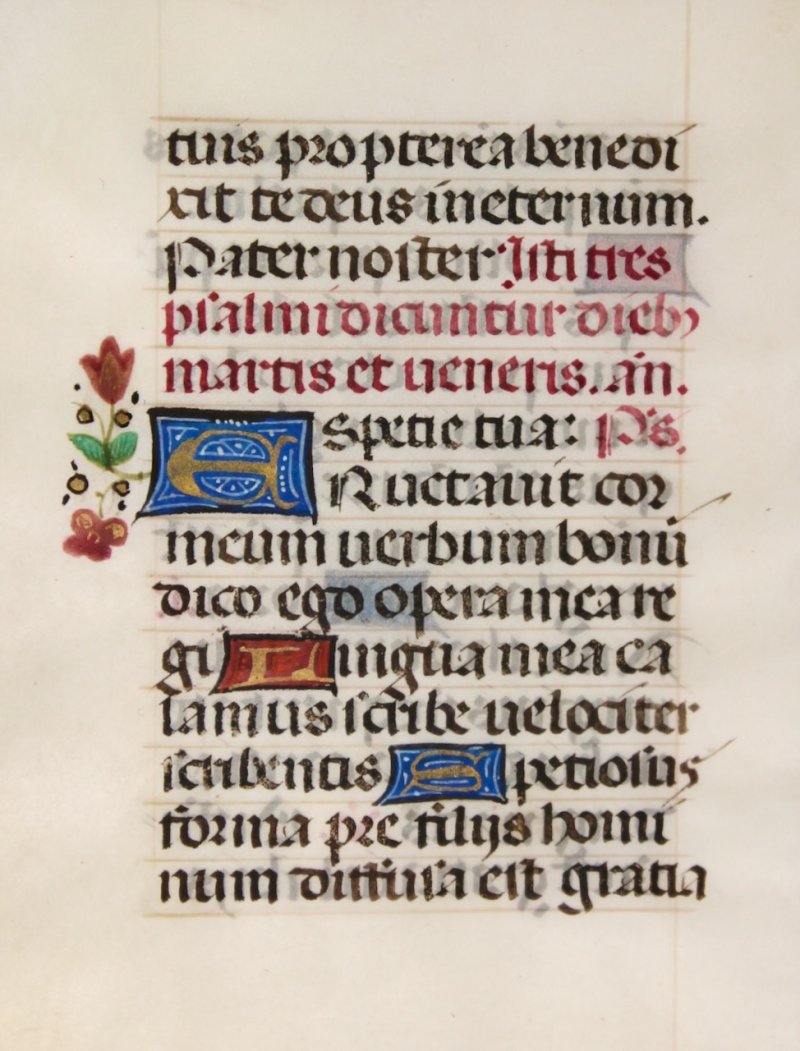 tuis propterea benedi
xit te deus in eternum.
Pater noster Isti tres
psalmi dicuntur dieb⁹
martis et veneris. an̄.
Spetie tua: Ps.
ERuctauit cor
meum uerbum bonū
dico ego opera mea re
gi Lingua mea ca
lamus scribe uelociter
scribentis Spetiosus
forma pre filijs homi
num diffusa est gratia